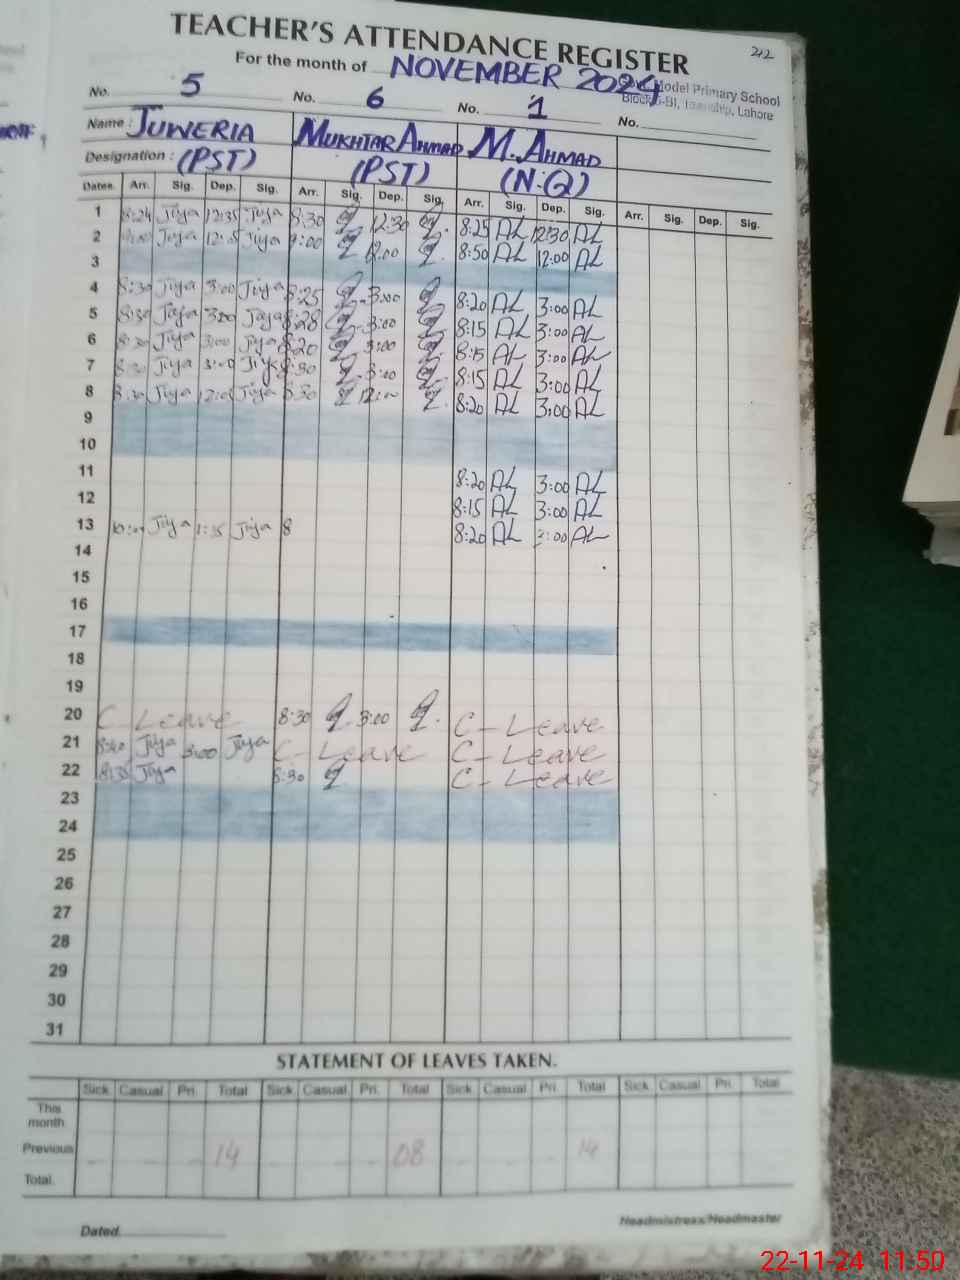 242
TEACHER'S ATTENDANCE REGISTER
For the month of NOVEMBER 2024
Govt. Model Primary School
Block-5-BI, Township, Lahore
No. 5 No. 6 No. 1 No.
Name : JUWERIA MUKHTAR AHMAD M. AHMAD
Designation : (PST) (PST) (N.Q)
Dates. Arr. Sig. Dep. Sig. Arr. Sig. Dep. Sig. Arr. Sig. Dep. Sig. Arr. Sig. Dep. Sig.
1 8:24 Jiya 12:35 Jiya 8:30 12:30 8:25 AL 12:30 AL
2 Jiya Jiya 9:00 12:00 8:50 AL 12:00 AL
3
4 8:30 Jiya 3:00 Jiya 8:25 3:00 8:20 AL 3:00 AL
5 8:30 Jiya 3:00 Jiya 8:28 3:00 8:15 AL 3:00 AL
6 8:30 Jiya 3:00 Jiya 8:20 3:00 8:15 AL 3:00 AL
7 8:30 Jiya 3:00 Jiya 8:30 3:00 8:15 AL 3:00 AL
8 8:30 Jiya 12:00 Jiya 8:30 12:00 8:20 AL 3:00 AL
9
10
11 8:20 AL 3:00 AL
12 8:15 AL 3:00 AL
13 Jiya 1:35 Jiya 8 8:20 AL 3:00 AL
14
15
16
17
18
19
20 C-Leave 8:30 3:00 C-Leave
21 8:40 Jiya 3:00 Jiya C-Leave C-Leave
22 8:35 Jiya 8:30 C-Leave
23
24
25
26
27
28
29
30
31
STATEMENT OF LEAVES TAKEN.
Sick Casual Pri. Total Sick Casual Pri. Total Sick Casual Pri. Total Sick Casual Pri. Total
This month
Previous 14 08 14
Total.
Dated
Headmistress/Headmaster
22-11-24 11:50